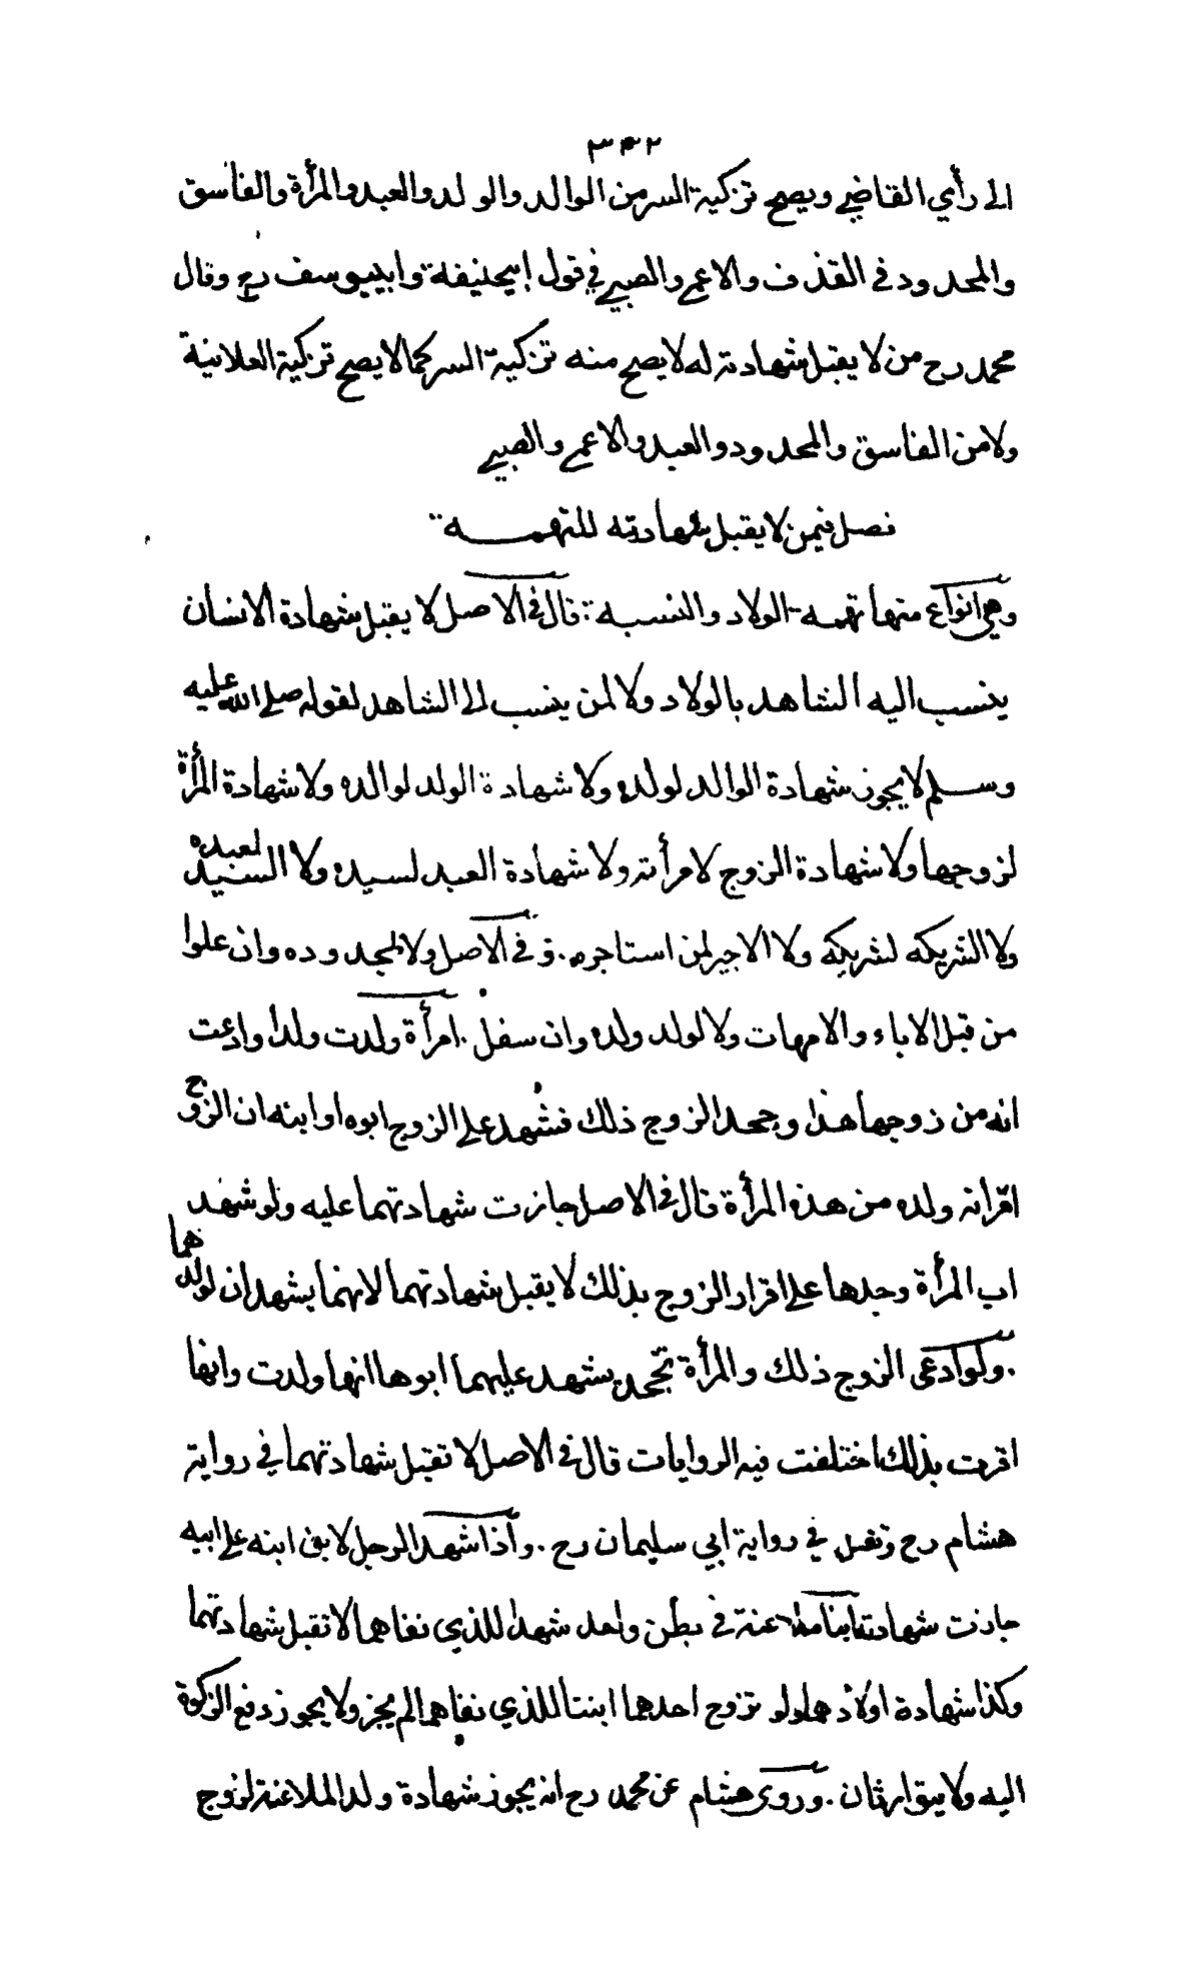 ٣٤٢
الى رأي القاضي ويصح تزكية السر من الوالد والولد والعبد والمرأة والفاسق
والمحدود في القذف والاعمى والصبي في قول ابيحنيفة وابييوسف رح وقال
محمد رح من لا يقبل شهادته له لا يصح منه تزكية السر كما لا يصح تزكية العلانية
ولا من الفاسق والمحدود والعبد والاعمى والصبي
فصل فيمن لا يقبل شهادته للتهمة
وهي انواع منها تهمة الولاد والنسبة : قال في الاصل لا يقبل شهادة الانسان
ينسب اليه الشاهد بالولاد ولا لمن ينسب الى الشاهد لقوله صلى الله عليه
وسلم لا يجوز شهادة الوالد لولده ولا شهادة الولد لوالده ولا شهادة المرأة
لزوجها ولا شهادة الزوج لامرأته ولا شهادة العبد لسيده ولا السيد لعبده
ولا الشريك لشريكه ولا الاجير لمن استاجره . و في الاصل ولا لجدوده وان علوا
من قبل الاباء والامهات ولا لولد ولده وان سفل . امرأة ولدت ولدا وادعت
انه من زوجها هذا وجحد الزوج ذلك فشهد على الزوج ابوه او ابنه ان الزوج
اقر انه ولده من هذه المرأة قال في الاصل جازت شهادتهما عليه ولو شهد
اب المرأة وجدها على اقرار الزوج بذلك لا يقبل شهادتهما لانهما يشهدان لولدهما
. ولو ادعى الزوج ذلك والمرأة تجحد يشهد عليهما ابوها انها ولدت وانها
اقرت بذلك اختلفت فيه الروايات قال في الاصل لا تقبل شهادتهما في رواية
هشام رح وتقبل في رواية ابي سليمان رح . واذا شهد الرجل لابن ابنه على ابيه
جازت شهادته ابنا ملاعنة في بطن واحد شهدا للذي نفاهما لا تقبل شهادتهما
وكذا شهادة اولادهما ولو تزوج احدهما ابنتا للذي نفاهما لم يجز ولا يجوز دفع الزكوة
اليه ولا يتوارثان . وروى هشام عن محمد رح انه يجوز شهادة ولد الملاعنة لزوج